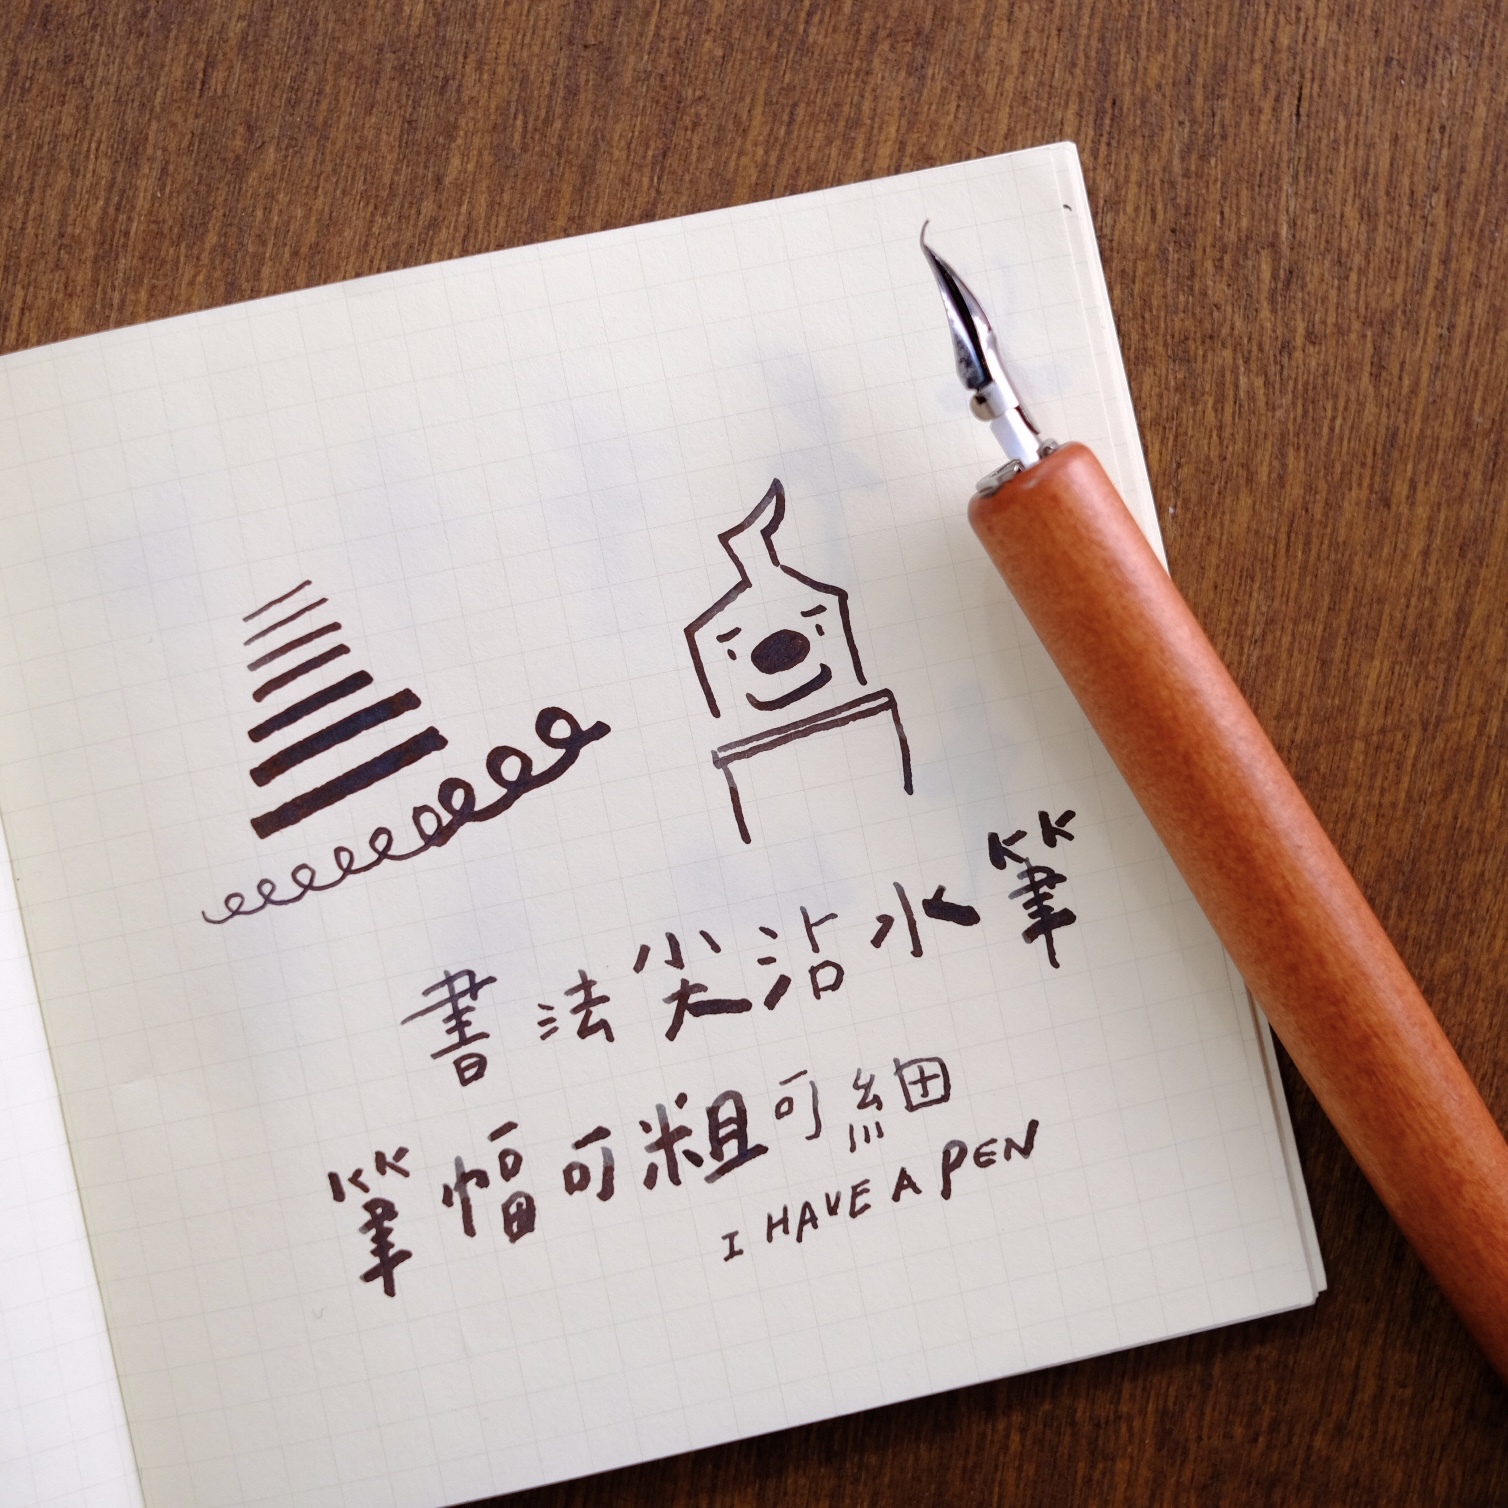 書法尖沾水筆
筆幅可粗可細
I HAVE A PEN